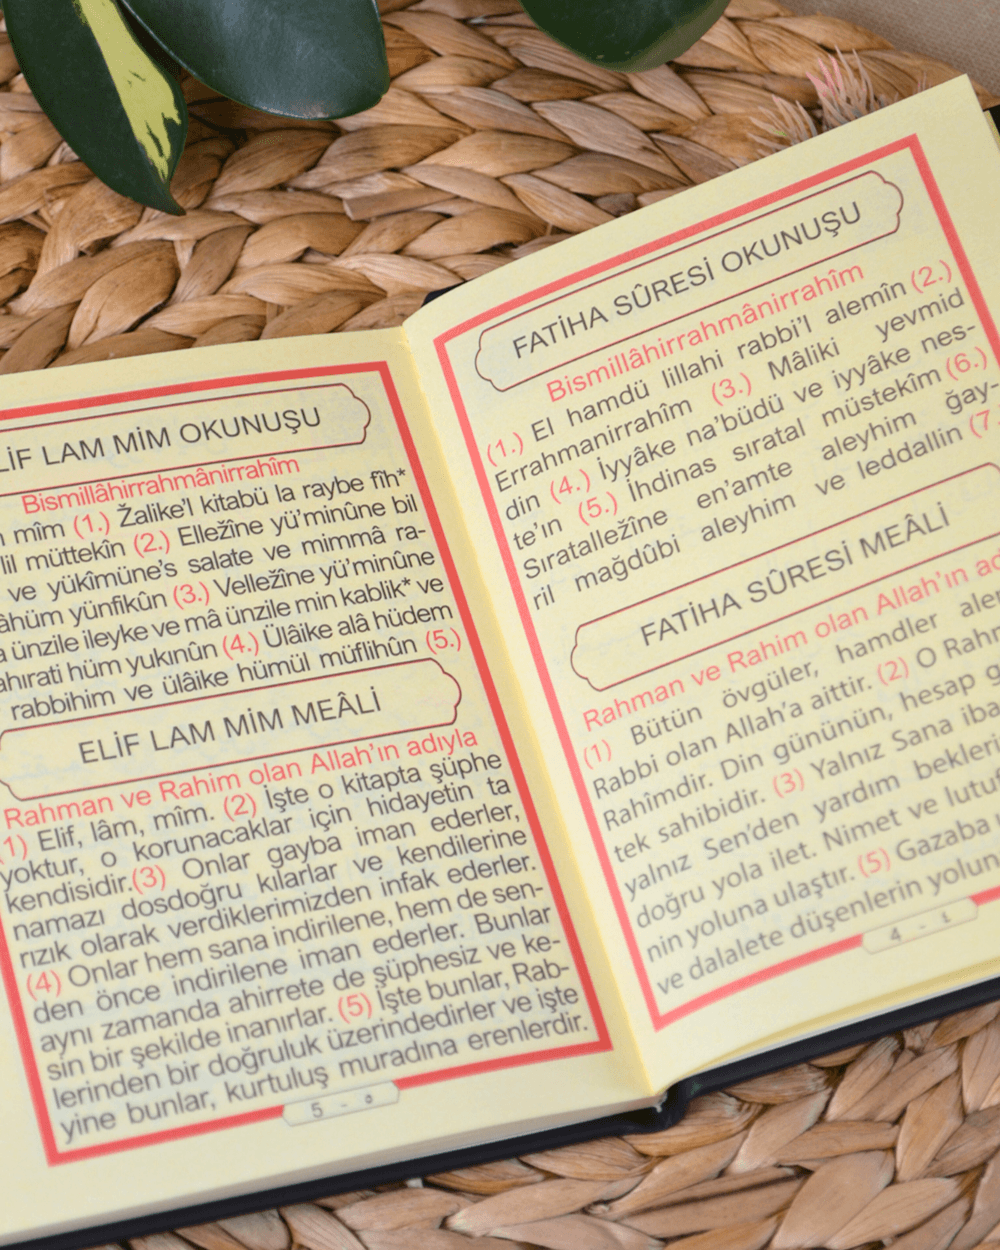 LİF LAM MİM OKUNUŞU
Bismillâhirrahmânirrahîm
mîm (1.) Žalike'l kitabü la raybe fîh*
lil müttekîn (2.) Elležîne yü'minûne bil
ve yükîmüne's salate ve mimmâ ra-
âhüm yünfikûn (3.) Velležîne yü'minûne
ünzile ileyke ve mâ ünzile min kablik* ve
ahırati hüm yukınûn (4.) Ülâike alâ hüdem
rabbihim ve ülâike hümül müflihûn (5.)
ELİF LAM MİM MEÂLİ
Rahman ve Rahim olan Allah'ın adıyla
(1) Elif, lâm, mîm. (2) İşte o kitapta şüphe
yoktur, o korunacaklar için hidayetin ta
kendisidir.(3) Onlar gayba iman ederler,
namazı dosdoğru kılarlar ve kendilerine
rızık olarak verdiklerimizden infak ederler.
(4) Onlar hem sana indirilene, hem de sen-
den önce indirilene iman ederler. Bunlar
aynı zamanda ahirrete de şüphesiz ve ke-
sin bir şekilde inanırlar. (5) İşte bunlar, Rab-
lerinden bir doğruluk üzerindedirler ve işte
yine bunlar, kurtuluş muradına erenlerdir.
5 - ٥
FATİHA SÛRESİ OKUNUŞU
Bismillâhirrahmânirrahîm
(1.) El hamdü lillahi rabbi'l alemîn (2.)
Errahmanirrahîm (3.) Mâliki yevmid
din (4.) İyyâke na'büdü ve iyyâke nes-
te'ın (5.) İhdinas sıratal müstekîm (6.)
Sıratalležîne en'amte aleyhim ğay-
ril mağdûbi aleyhim ve leddallin (7.
FATİHA SÛRESİ MEÂLİ
Rahman ve Rahim olan Allah'ın ad
(1) Bütün övgüler, hamdler ale
Rabbi olan Allah'a aittir. (2) O Rahm
Rahîmdir. Din gününün, hesap g
tek sahibidir. (3) Yalnız Sana iba
yalnız Sen'den yardım bekleri
doğru yola ilet. Nimet ve lutu
nin yoluna ulaştır. (5) Gazaba
ve dalalete düşenlerin yolun
4 - ٤